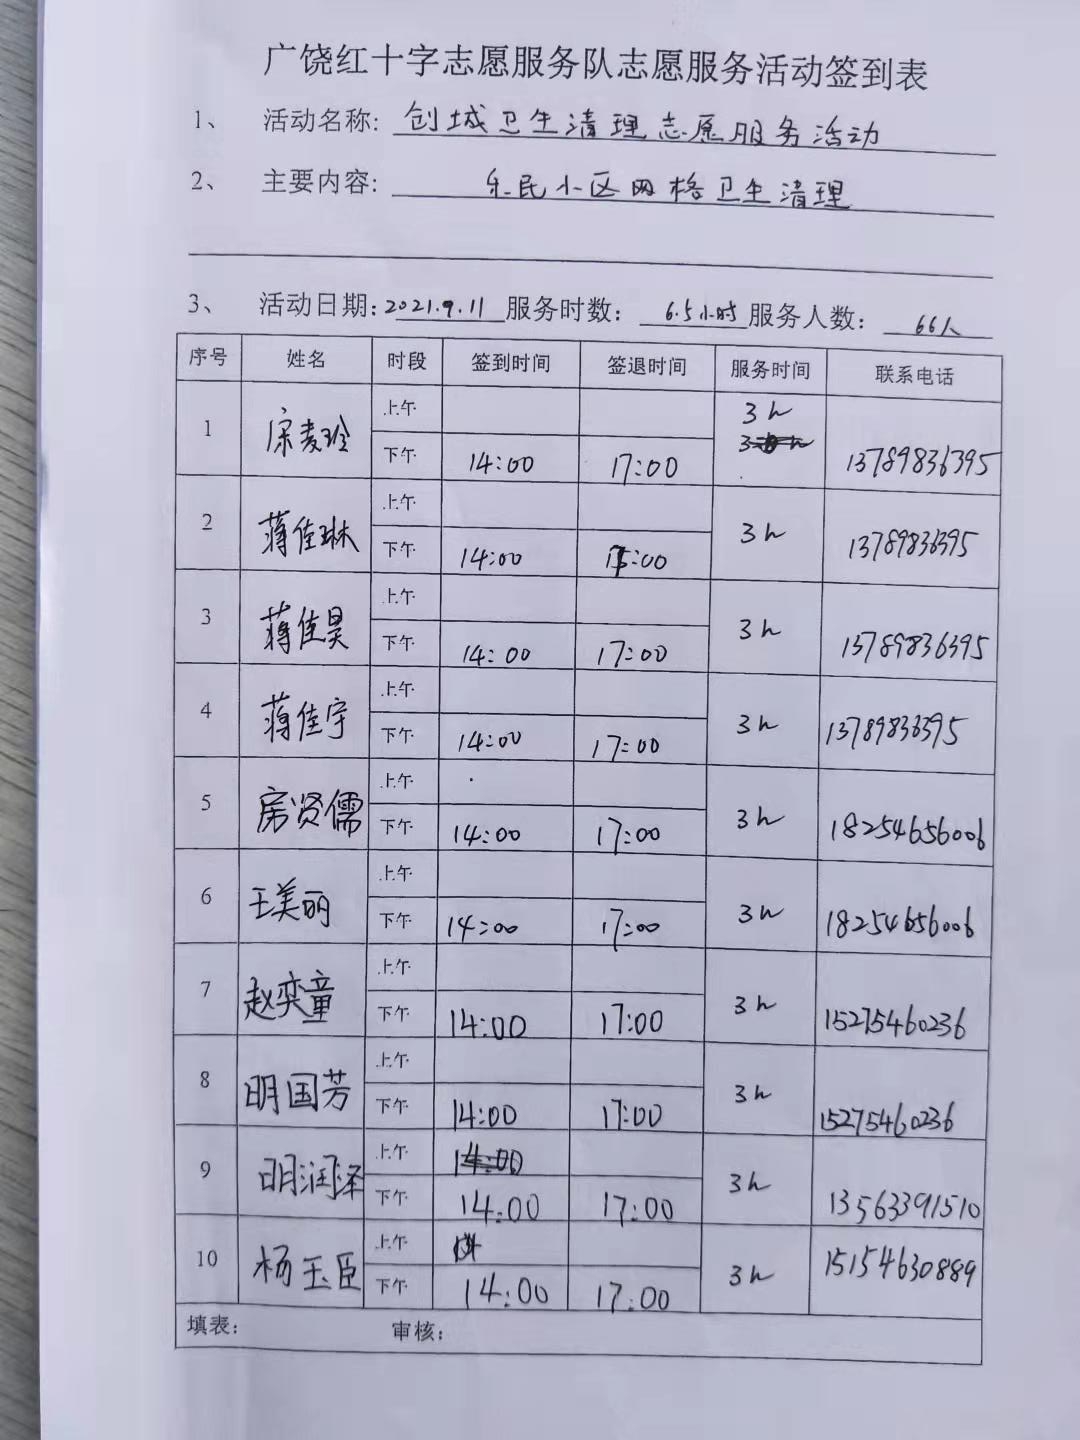 广饶红十字志愿服务队志愿服务活动签到表
1、 活动名称: 创城卫生清理志愿服务活动
2、 主要内容: 乐民小区网格卫生清理
3、 活动日期: 2021.9.11 服务时数: 6.5小时 服务人数: 66人
序号 姓名 时段 签到时间 签退时间 服务时间 联系电话
上午 3h
1 宗麦玲 下午 14:00 17:00 13789836395
上午
2 蒋佳琳 下午 14:00 :00 3h 13789836395
上午
3 蒋佳昊 下午 14:00 17:00 3h 13789836395
上午
4 蒋佳宇 下午 14:00 17:00 3h 13789836395
上午
5 房贤儒 下午 14:00 17:00 3h 18254656006
上午
6 王美丽 下午 14:00 17:00 3h 18254656006
上午
7 赵奕童 下午 14:00 17:00 3h 15275460236
上午
8 明国芳 下午 14:00 17:00 3h 15275460236
上午 14:00
9 明润泽 下午 14:00 17:00 3h 13563391510
上午
10 杨玉臣 下午 14:00 17:00 3h 15154630889
填表: 审核: